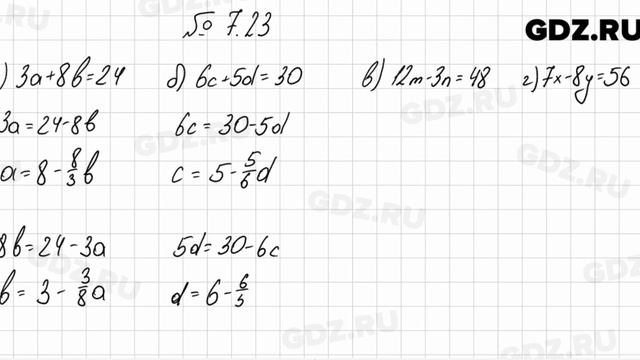 № 7.23
GDZ.RU
) 3a+8b=24
3a=24-8b
a=8-8/3b
8b=24-3a
b=3-3/8a
б) 6c+5d=30
6c=30-5d
c=5-5/6d
5d=30-6c
d=6-6/5
в) 12m-3n=48
г) 7x-8y=56
GDZ.RU
GDZ.RU
GDZ.RU
GDZ.RU
GDZ.RU
GDZ.RU